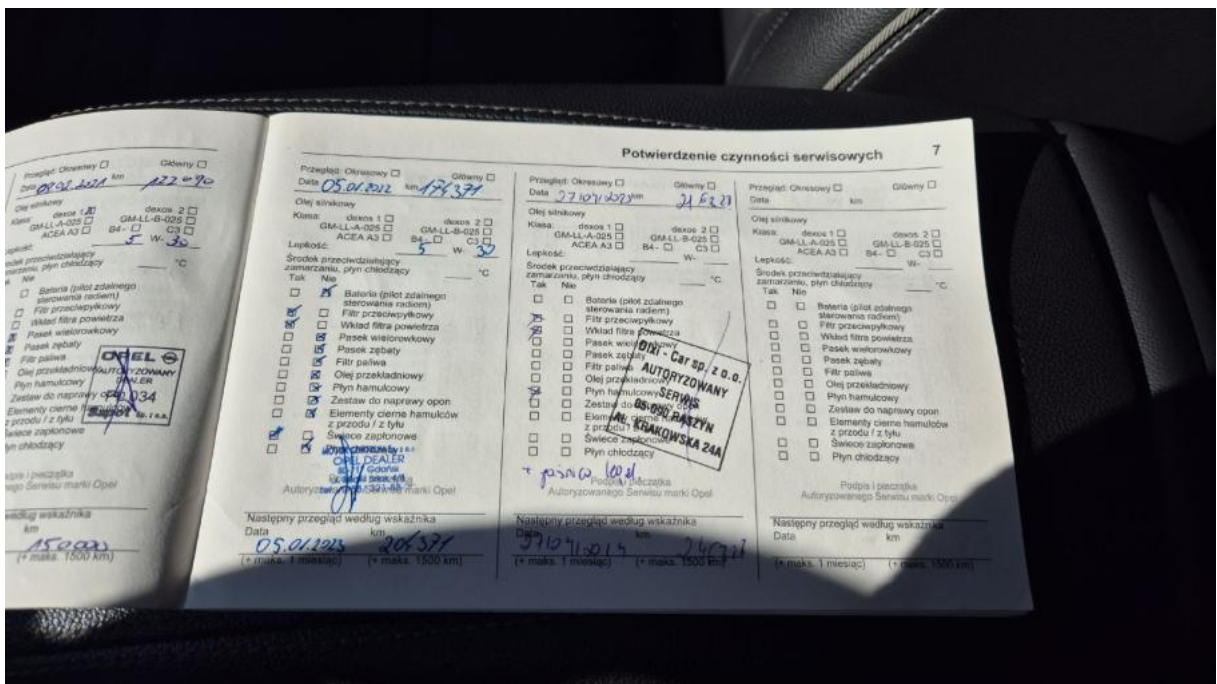 Potwierdzenie czynności serwisowych 7
Przegląd: Okresowy Główny
Data 09.02.2021 km
Olej silnikowy
Klasa: dexos 1 dexos 2
GM-LL-A-025 GM-LL-B-025
ACEA A3 B4- C3
5 W- 30
zamarzaniu, płyn chłodzący °C
Nie
Bateria (pilot zdalnego
sterowania radiem)
Filtr przeciwpyłkowy
Wkład filtra powietrza
Pasek wielorowkowy
Pasek zębaty
Filtr paliwa
Olej przekładniowy
Płyn hamulcowy
Zestaw do naprawy
Elementy cierne
z przodu / z tyłu
Świece zapłonowe
płyn chłodzący
OPEL
AUTORYZOWANY
DEALER
034
km
150000
(+ maks. 1500 km)
Przegląd: Okresowy Główny
Data 05.01.2022 km 174371
Olej silnikowy
Klasa: dexos 1 dexos 2
GM-LL-A-025 GM-LL-B-025
ACEA A3 B4- C3
Lepkość: 5 W- 30
Środek przeciwdziałający
zamarzaniu, płyn chłodzący °C
Tak Nie
Bateria (pilot zdalnego
sterowania radiem)
Filtr przeciwpyłkowy
Wkład filtra powietrza
Pasek wielorowkowy
Pasek zębaty
Filtr paliwa
Olej przekładniowy
Płyn hamulcowy
Zestaw do naprawy opon
Elementy cierne hamulców
z przodu / z tyłu
Świece zapłonowe
OPEL DEALER
Gdańsk
Serwisu marki Opel
Następny przegląd według wskaźnika
Data km
05.01.2023 204371
(+ maks. 1 miesiąc) (+ maks. 1500 km)
Przegląd: Okresowy Główny
Data km
Olej silnikowy
Klasa: dexos 1 dexos 2
GM-LL-A-025 GM-LL-B-025
ACEA A3 B4- C3
Lepkość: W-
Środek przeciwdziałający
zamarzaniu, płyn chłodzący °C
Tak Nie
Bateria (pilot zdalnego
sterowania radiem)
Filtr przeciwpyłkowy
Wkład filtra powietrza
Pasek
Pasek zębaty
Filtr paliwa
Olej przekładniowy
Płyn hamulcowy
Zestaw do
Elementy cierne
z przodu /
Świece zapłonowe
Płyn chłodzący
Dixi - Car sp. z o.o.
AUTORYZOWANY
SERWIS
05-090 RASZYN
AL. KRAKOWSKA 24A
Podpis i pieczątka
Autoryzowanego Serwisu marki Opel
Następny przegląd według wskaźnika
Data km
(+ maks. 1 miesiąc) (+ maks. 1500 km)
Przegląd: Okresowy Główny
Data km
Olej silnikowy
Klasa: dexos 1 dexos 2
GM-LL-A-025 GM-LL-B-025
ACEA A3 B4- C3
Lepkość: W-
Środek przeciwdziałający
zamarzaniu, płyn chłodzący °C
Tak Nie
Bateria (pilot zdalnego
sterowania radiem)
Filtr przeciwpyłkowy
Wkład filtra powietrza
Pasek wielorowkowy
Pasek zębaty
Filtr paliwa
Olej przekładniowy
Płyn hamulcowy
Zestaw do naprawy opon
Elementy cierne hamulców
z przodu / z tyłu
Świece zapłonowe
Płyn chłodzący
Podpis i pieczątka
Autoryzowanego Serwisu marki Opel
Następny przegląd według wskaźnika
Data km
(+ maks. 1 miesiąc) (+ maks. 1500 km)